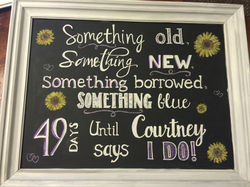 Something old,
Something NEW,
Something borrowed,
SOMETHING blue
49 DAYS Until Courtney
says I DO!